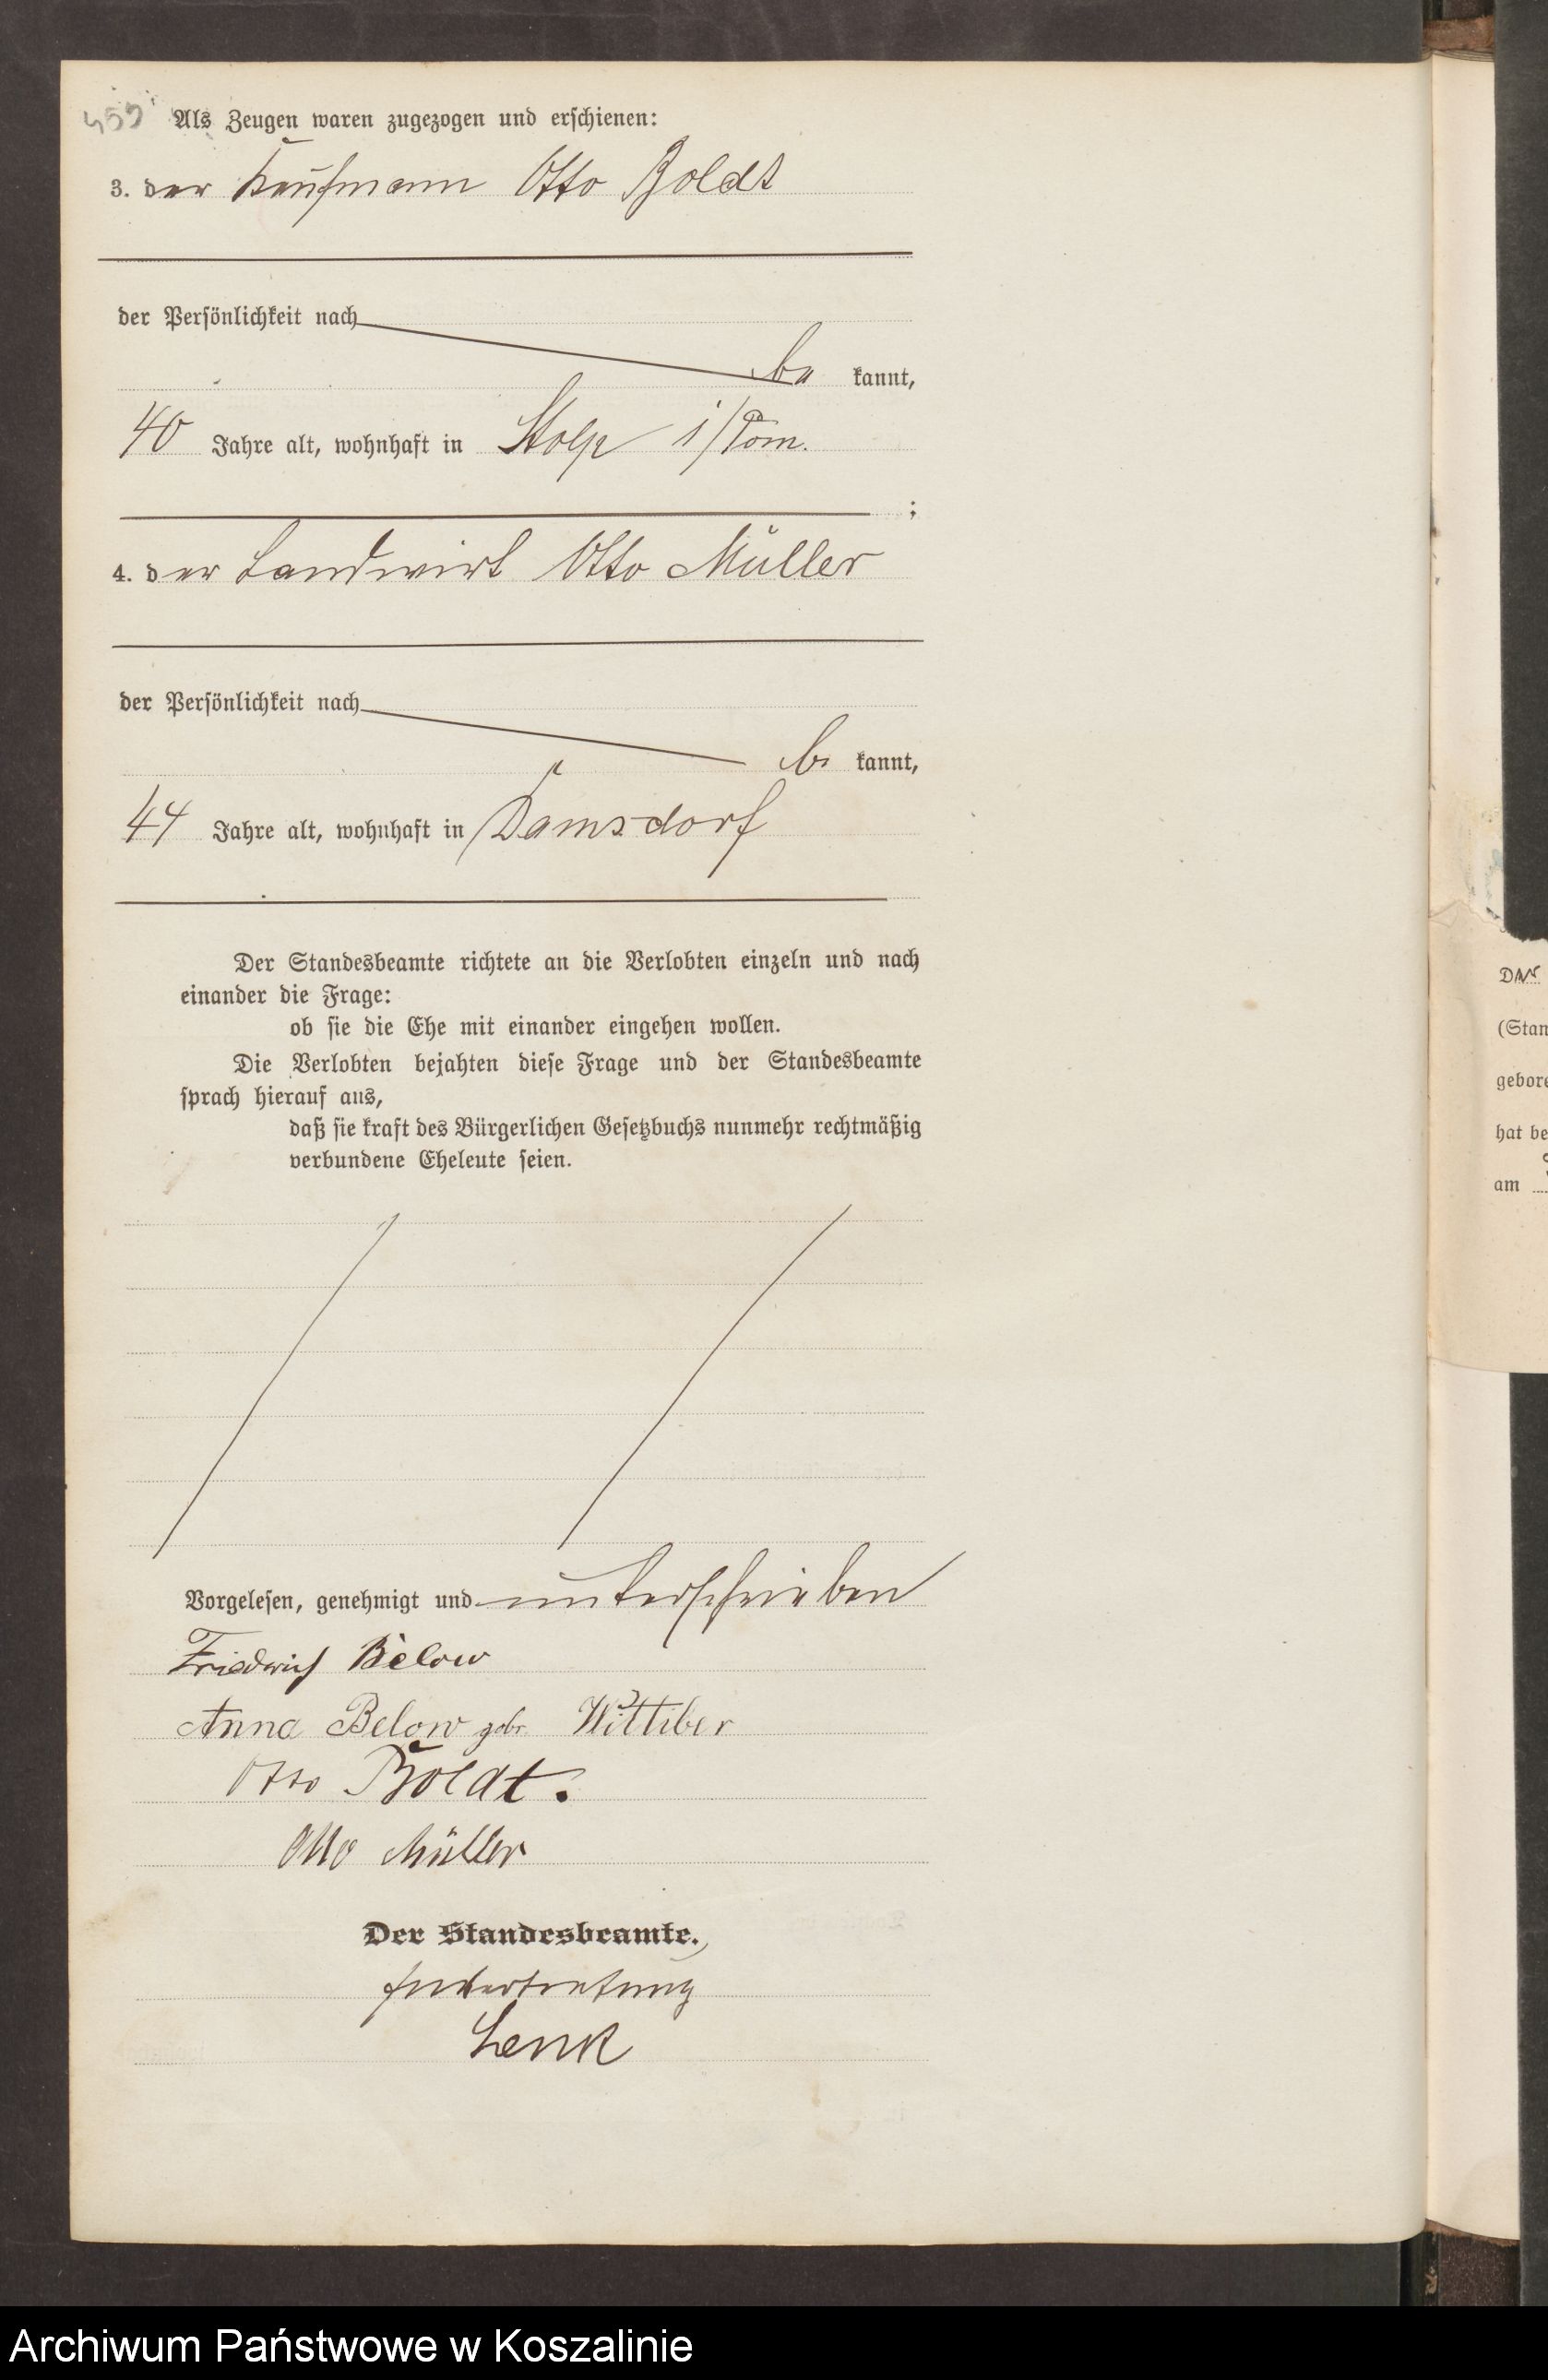 459
Als Zeugen waren zugezogen und erschienen:
3. der Kaufmann Otto Boldt
der Persönlichkeit nach
be kannt,
40 Jahre alt, wohnhaft in Stolp i/Pom.
;
4. der Landwirt Otto Müller
der Persönlichkeit nach
be kannt,
44 Jahre alt, wohnhaft in Damsdorf
Der Standesbeamte richtete an die Verlobten einzeln und nach
einander die Frage:
ob sie die Ehe mit einander eingehen wollen.
Die Verlobten bejahten diese Frage und der Standesbeamte
sprach hierauf aus,
daß sie kraft des Bürgerlichen Gesetzbuchs nunmehr rechtmäßig
verbundene Eheleute seien.
Vorgelesen, genehmigt und unterschrieben
Friedrich Below
Anna Below gebr Wittiber
Otto Boldt.
Otto Müller
Der Standesbeamte.
In Vertretung
Lenk
Der
(Stan
gebore
hat be
am
Archiwum Państwowe w Koszalinie